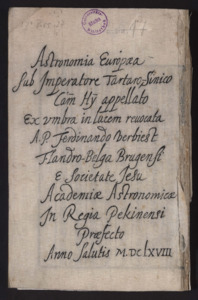 Astronomia Europæa
Sub Imperatore Tartaro-Sinico
Cám Hy appellato
Ex vmbra in lucem reuocata
A P. Ferdinando Verbiest
Flandro-Belga Brugensi
E Societate Jesu
Academiæ Astronomicæ
In Regia Pekinensi
Præfecto
Anno Salutis M. DC lXVIII